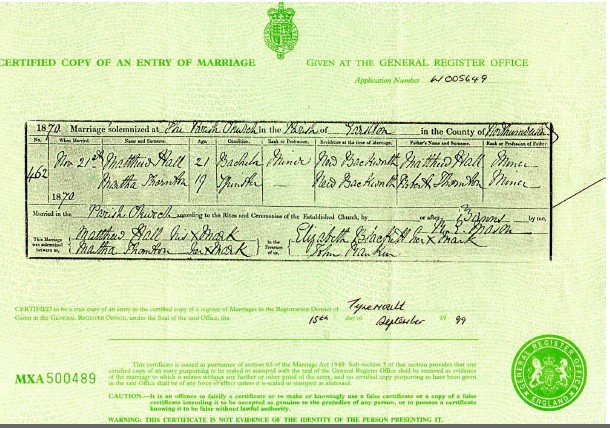 CERTIFIED COPY OF AN ENTRY OF MARRIAGE
GIVEN AT THE GENERAL REGISTER OFFICE
Application Number W005649
1870. Marriage solemnized at The Parish Church in the Parish of Earsdon in the County of Northumberland
No. When Married. Name and Surname. Age Condition. Rank or Profession. Residence at the time of Marriage. Father's Name and Surname. Rank or Profession of Father.
462 Nov. 21st Matthew Hall 21 Bachelor Miner New Backworth Matthew Hall Miner
1870 Martha Thornton 19 Spinster — New Backworth Robert Thornton Miner
Married in the Parish Church according to the Rites and Ceremonies of the Established Church, by or after Banns by me,
Mason
This Marriage was solemnized between us, Matthew Hall his X Mark in the Presence of us, Elizabeth her X Mark
Martha Thornton her X Mark John
CERTIFIED to be a true copy of an entry in the certified copy of a register of Marriages in the Registration District of Tynemouth
Given at the GENERAL REGISTER OFFICE, under the Seal of the said Office, the 15th day of September 19 99
This certificate is issued in pursuance of section 65 of the Marriage Act 1949. Sub-section 3 of that section provides that any
certified copy of an entry purporting to be sealed or stamped with the seal of the General Register Office shall be received as evidence
of the marriage to which it relates without any further or other proof of the entry, and no certified copy purporting to have been given
in the said Office shall be of any force or effect unless it is sealed or stamped as aforesaid.
MXA 500489
CAUTION:—It is an offence to falsify a certificate or to make or knowingly use a false certificate or a copy of a false
certificate intending it to be accepted as genuine to the prejudice of any person, or to possess a certificate
knowing it to be false without lawful authority.
WARNING: THIS CERTIFICATE IS NOT EVIDENCE OF THE IDENTITY OF THE PERSON PRESENTING IT.
GENERAL REGISTER OFFICE
ENGLAND